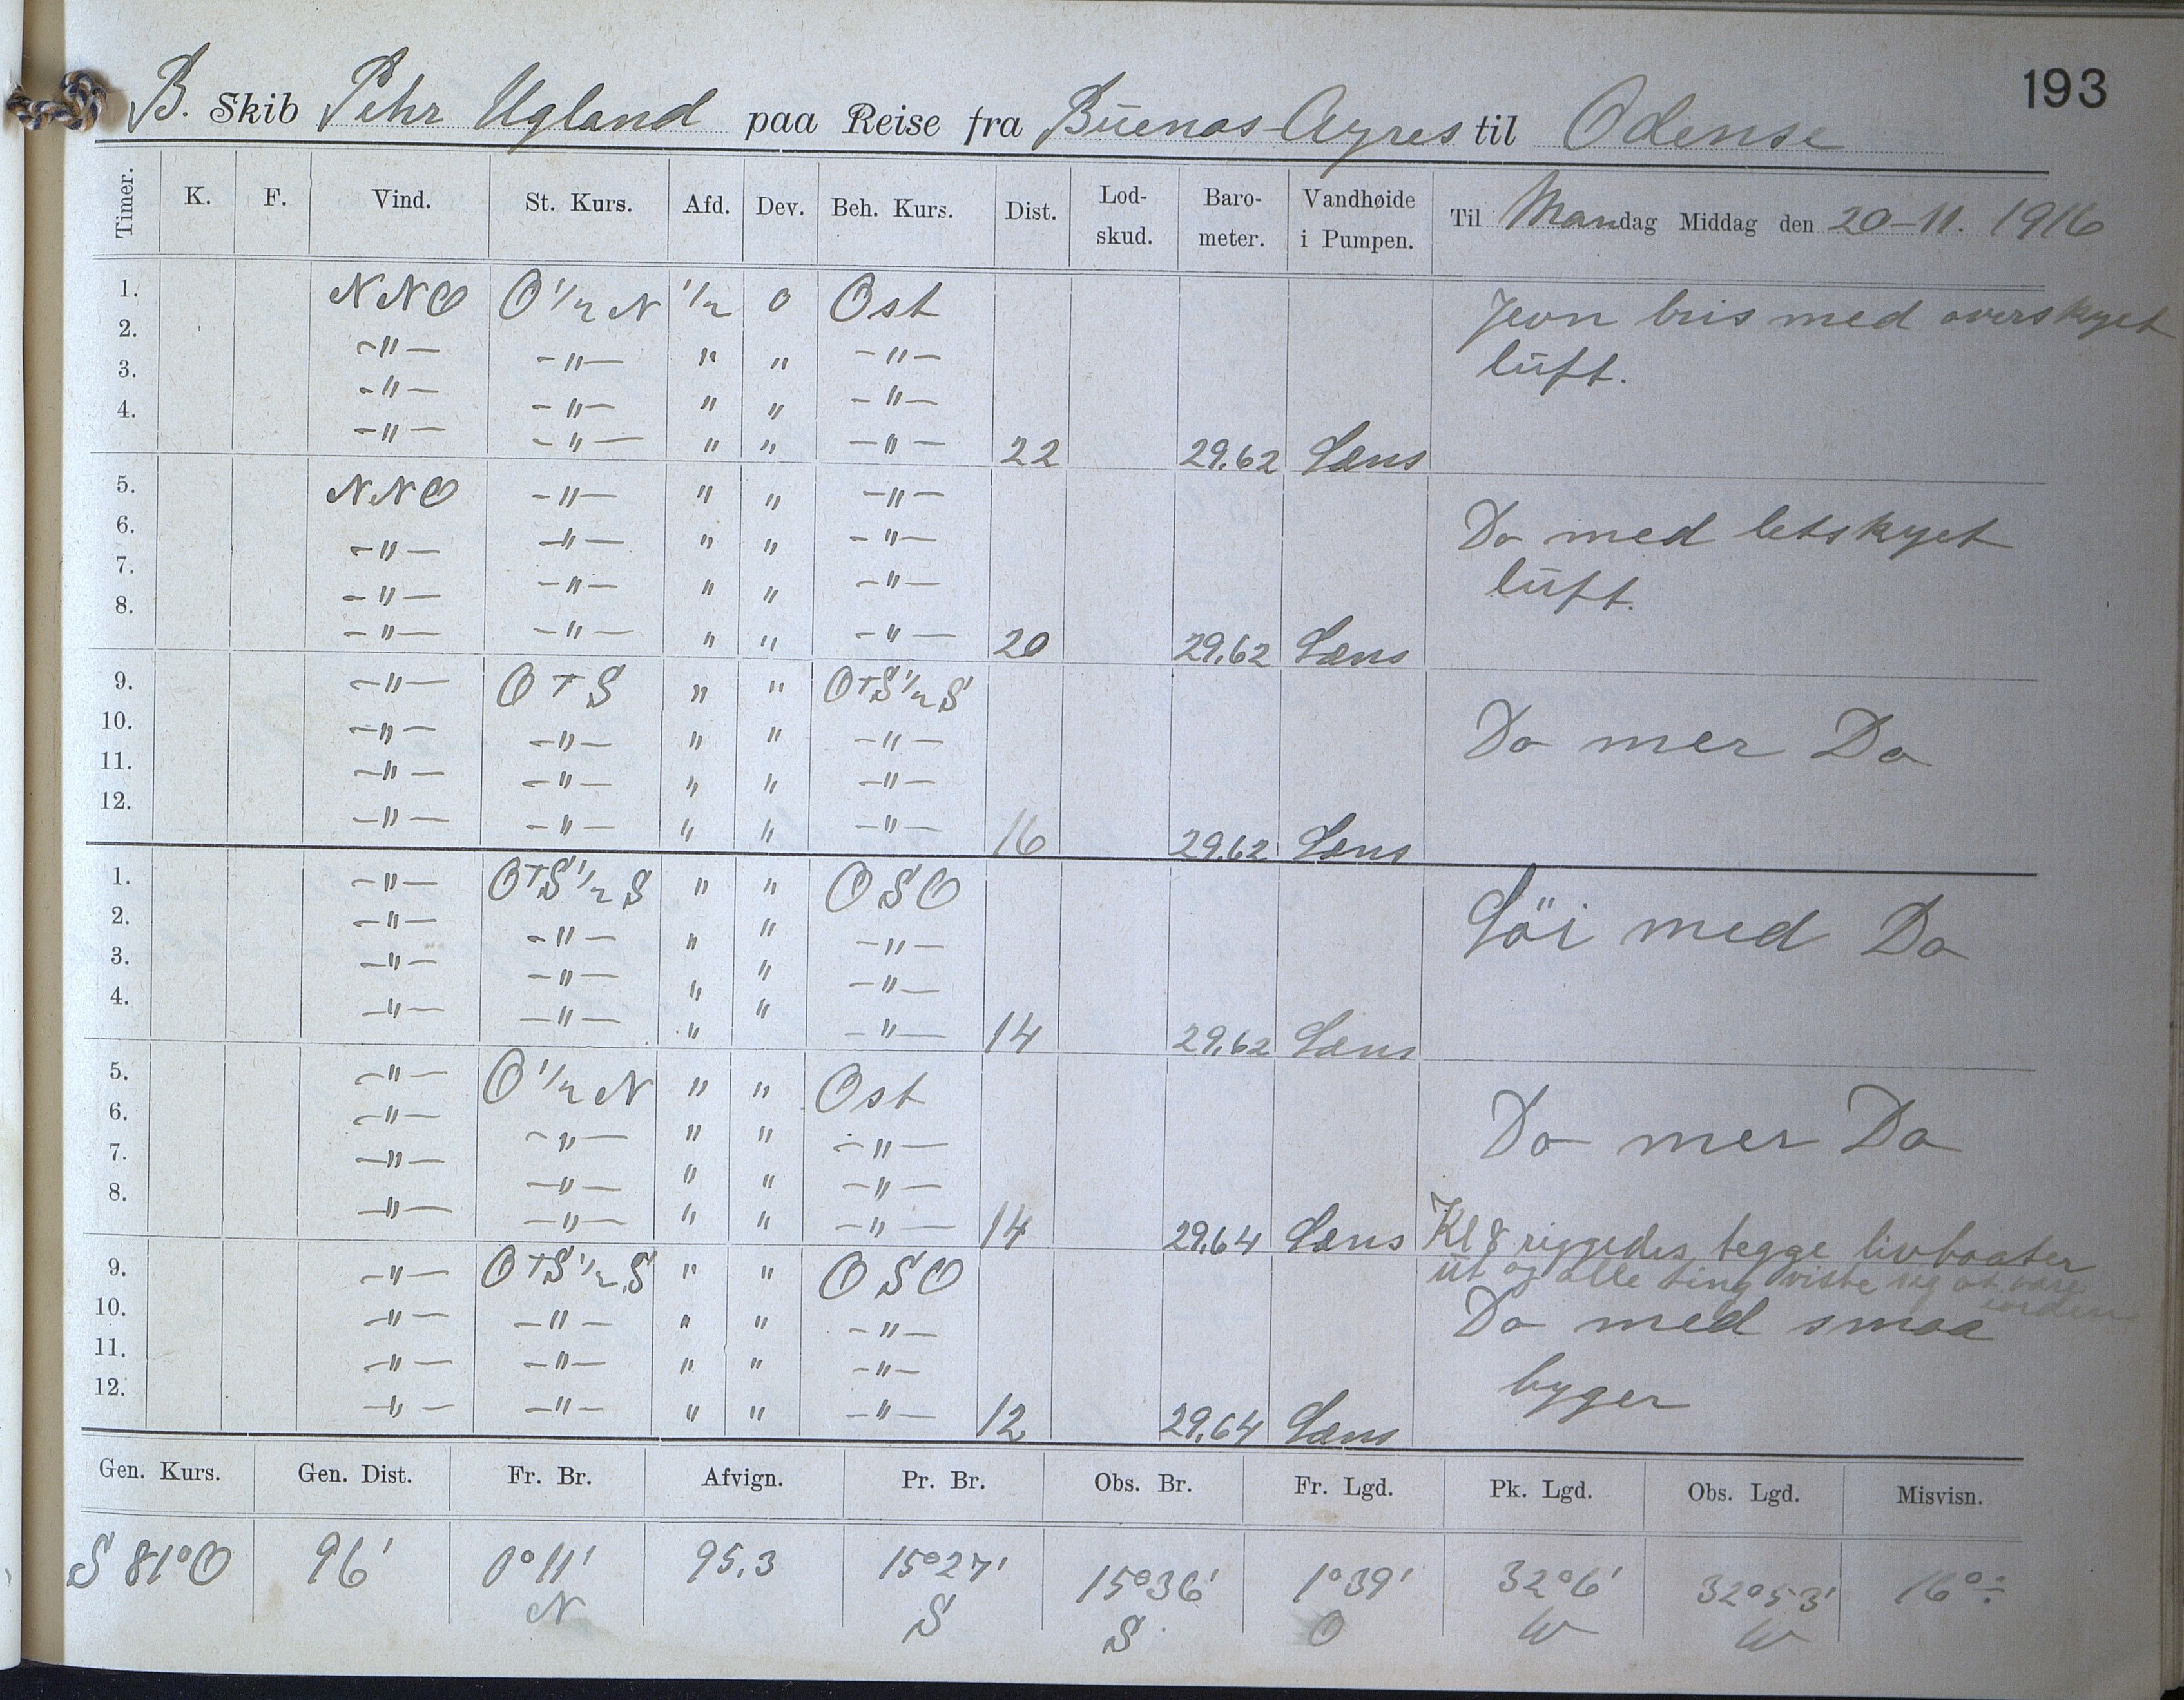 193
B. Skib Pehr Ugland paa Reise fra Buenos-Ayres til Odense
Timer. K. F. Vind. St. Kurs. Afd. Dev. Beh. Kurs. Dist. Lod-skud. Baro-meter. Vandhøide i Pumpen. Til Mandag Middag den 20-11. 1916
1. NNO O 1/2 N 1/2 0 Ost Jevn bris med overskyet
2. -"- -"- " " -"- luft.
3. -"- -"- " " -"-
4. -"- -"- " " -"- 22 29,62 Læns
5. NNO -"- " " -"- Do med letskyet
6. -"- -"- " " -"- luft.
7. -"- -"- " " -"-
8. -"- -"- " " -"- 20 29,62 Læns
9. -"- OTS " " OTS 1/2 S Do mer Do
10. -"- -"- " " -"-
11. -"- -"- " " -"-
12. -"- -"- " " -"- 16 29,62 Læns
1. -"- OTS 1/2 S " " OSO Löi med Do
2. -"- -"- " " -"-
3. -"- -"- " " -"-
4. -"- -"- " " -"- 14 29,62 Læns
5. -"- O 1/2 N " " Ost Do mer Do
6. -"- -"- " " -"-
7. -"- -"- " " -"-
8. -"- -"- " " -"- 14 29,64 Læns Kl 8 riggedes begge livbaater
ut og alle ting viste sig at være
iorden
9. -"- OTS 1/2 S " " OSO Do med smaa
10. -"- -"- " " -"-
11. -"- -"- " " -"- byger
12. -"- -"- " " -"- 12 29,64 Læns
Gen. Kurs. Gen. Dist. Fr. Br. Afvign. Pr. Br. Obs. Br. Fr. Lgd. Pk. Lgd. Obs. Lgd. Misvisn.
S 81° O 96' 0° 11' 95,3 15° 27' 15° 36' 1° 39' 32° 6' 32° 53' 16° ÷
N S S O W W